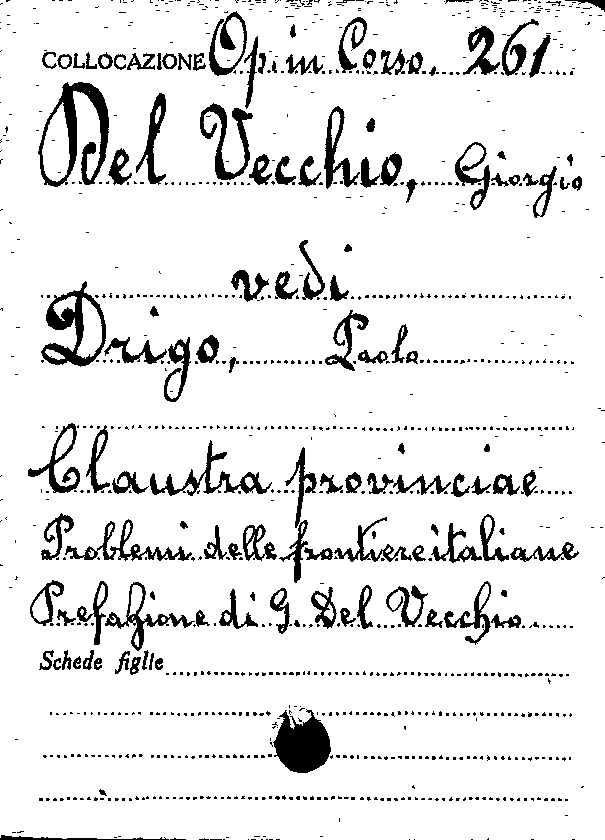 COLLOCAZIONE Op. in Corso. 261
Del Vecchio, Giorgio
vedi
Drigo, Paolo
Claustra provinciae
Problemi delle frontiere italiane
Prefazione di G. Del Vecchio.
Schede figlie